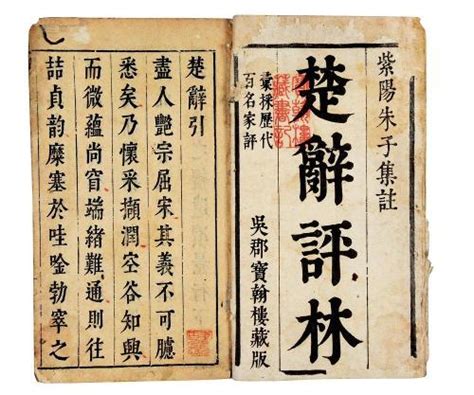 紫陽朱子集註
楚辭評林
彙採歷代
百名家評
吳郡寶翰樓藏版
楚辭引
盡人艷宗屈宋其義不可臆
悉矣乃懷采擷潤空谷知興
而微蘊尚窅端緒難通則往
詰貞韵糜塞於哇唫勃窣之